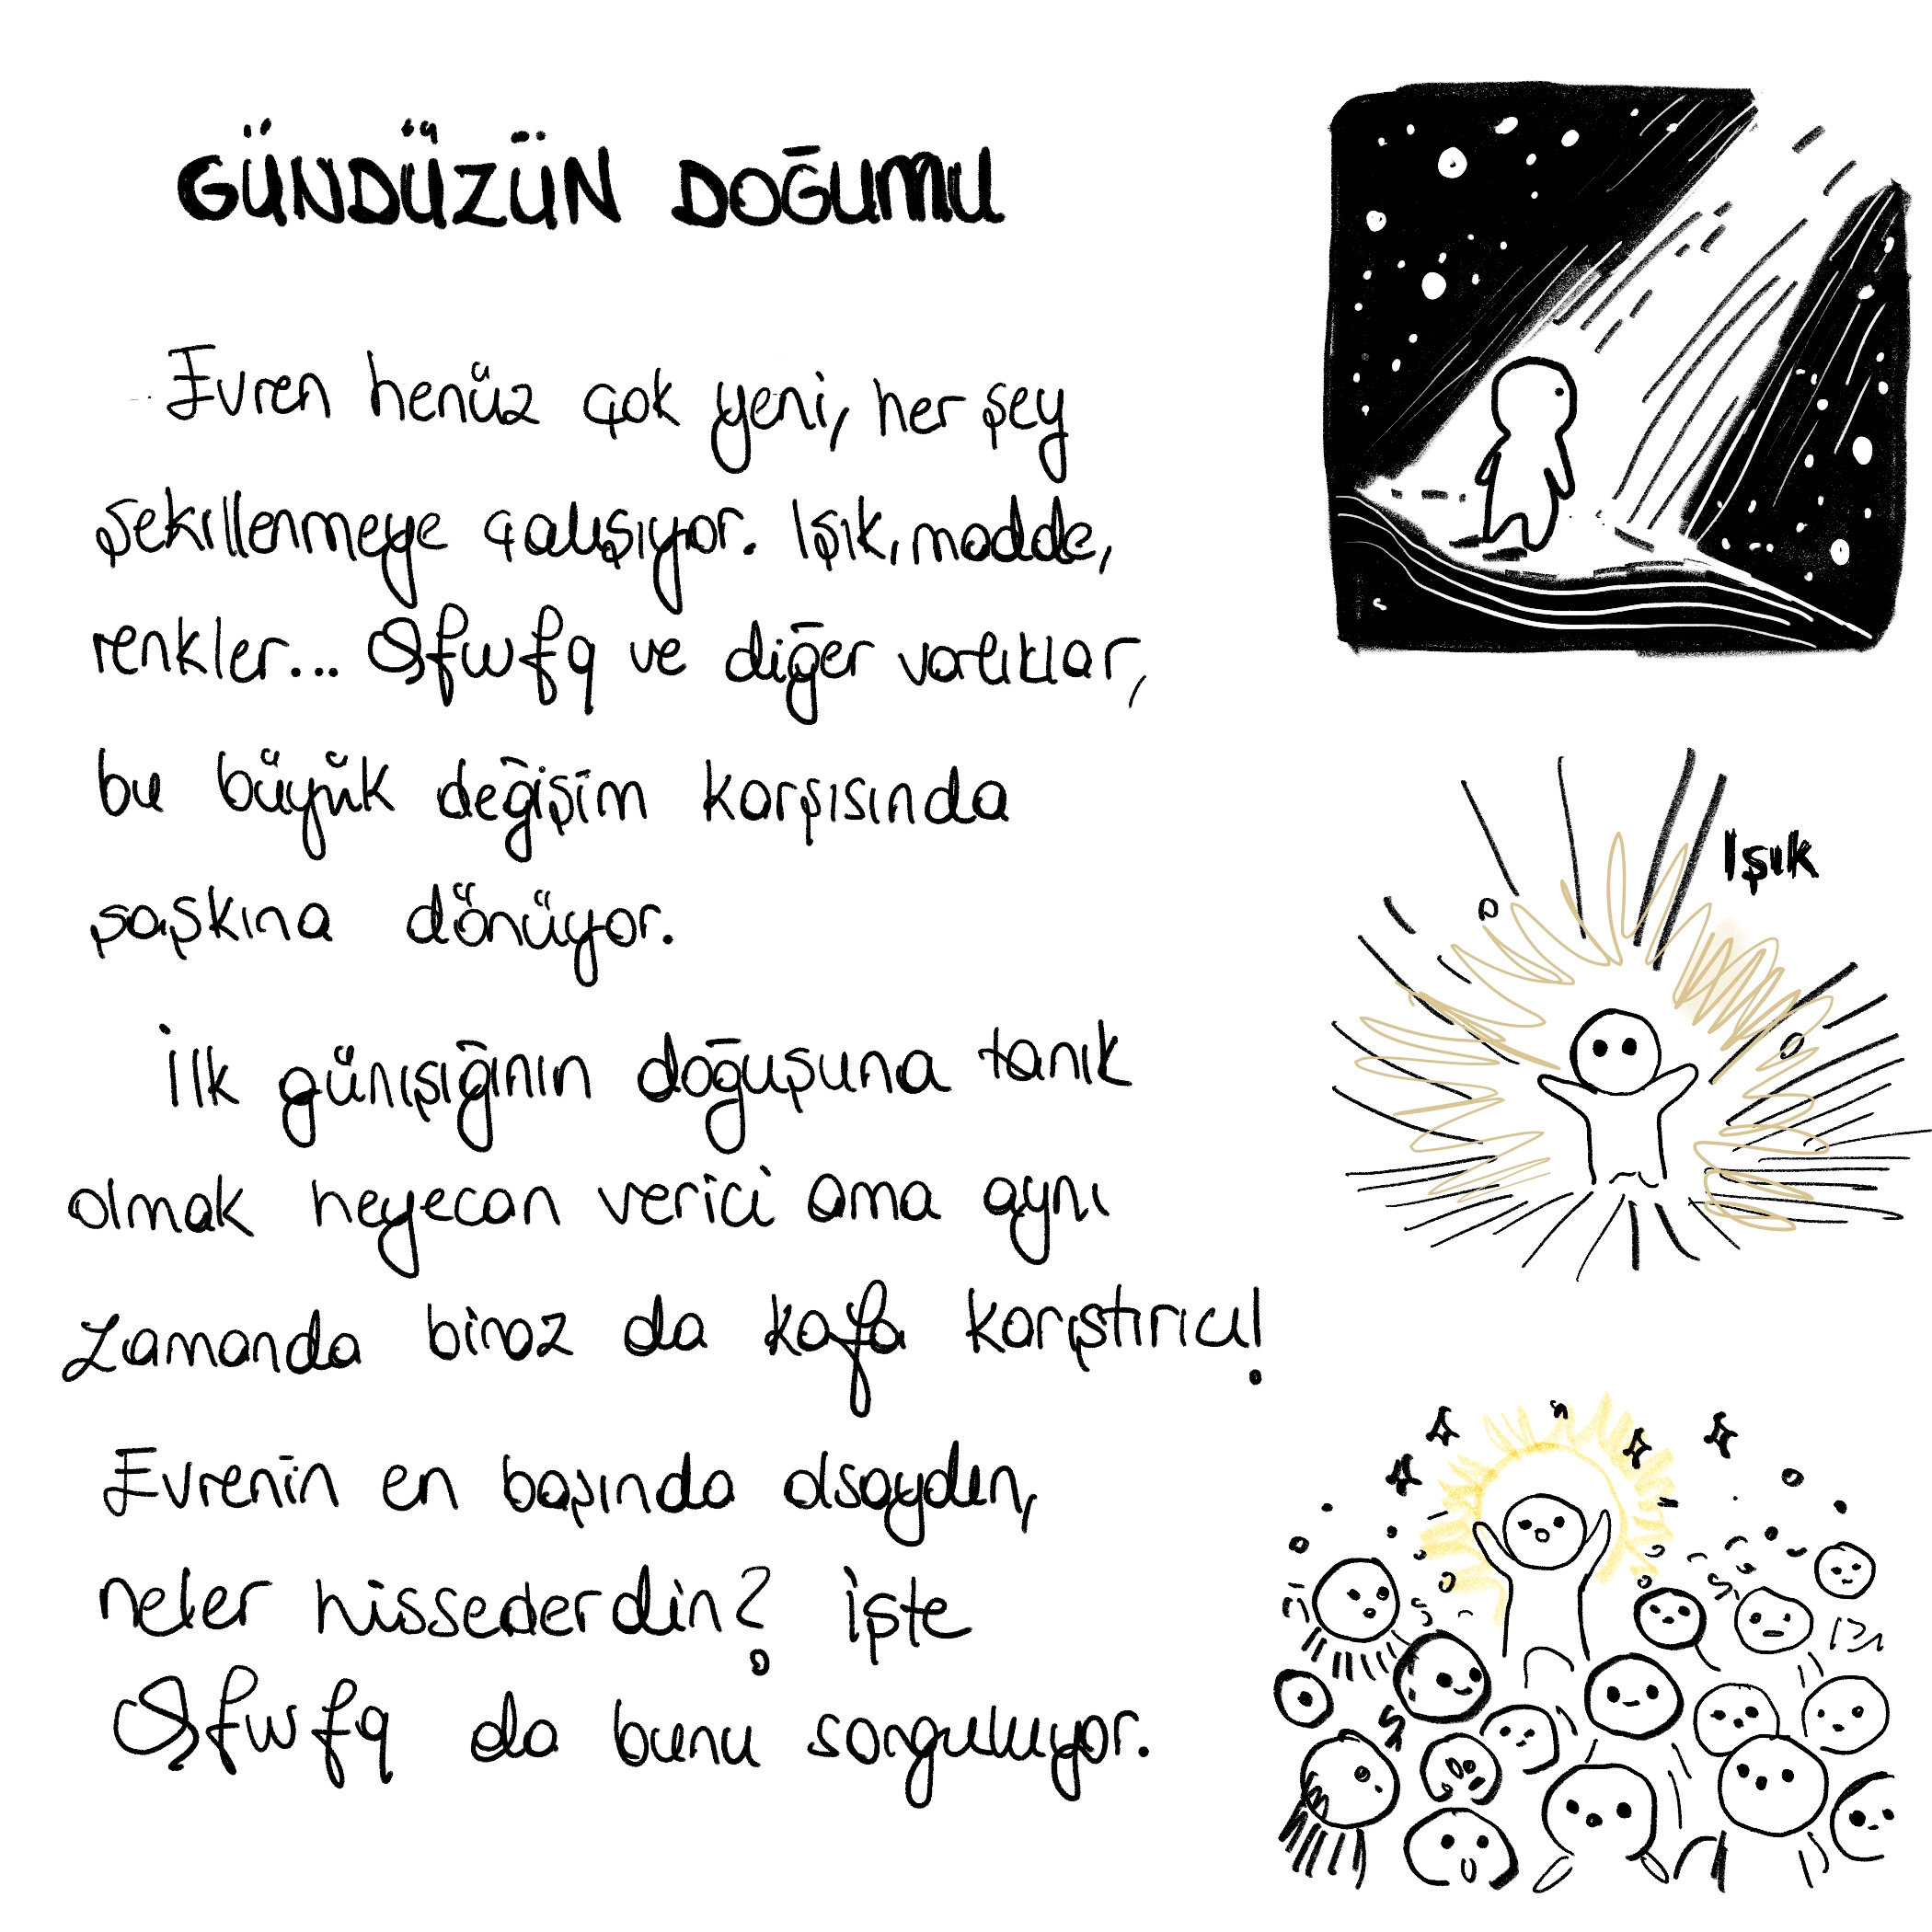 GÜNDÜZÜN DOĞUMU
Evren henüz çok yeni, her şey
şekillenmeye çalışıyor. Işık, madde,
renkler... Qfwfq ve diğer varlıklar,
bu büyük değişim karşısında
şaşkına dönüyor.
İlk günışığının doğuşuna tanık
olmak heyecan verici ama aynı
zamanda biraz da kafa karıştırıcı!
Evrenin en başında olsaydın,
neler hissederdin? İşte
Qfwfq da bunu sorguluyor.
Işık